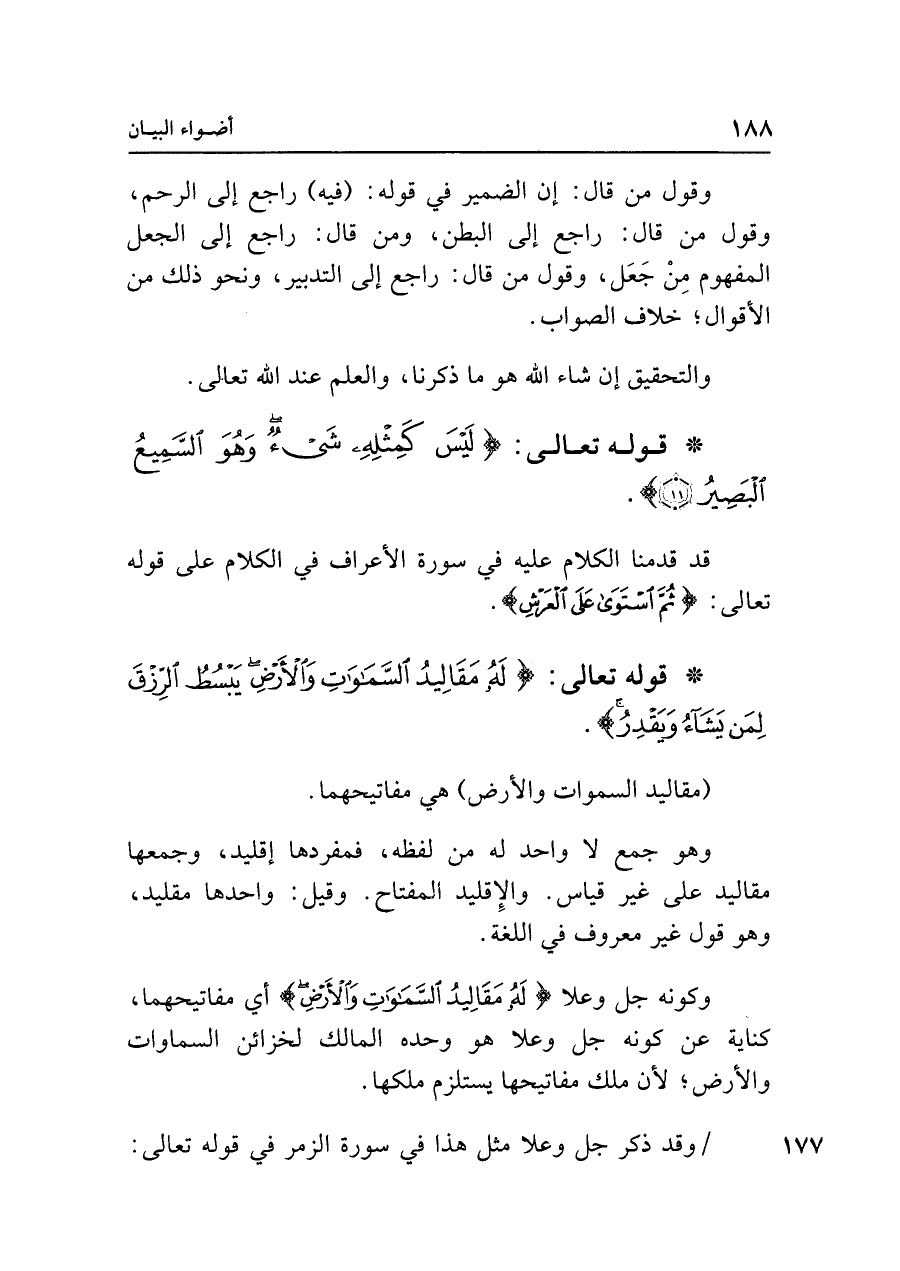 ١٨٨ أضـواء البيـان
وقول من قال: إن الضمير في قوله: (فيه) راجع إلى الرحم،
وقول من قال: راجع إلى البطن، ومن قال: راجع إلى الجعل
المفهوم مِنْ جَعَل، وقول من قال: راجع إلى التدبير، ونحو ذلك من
الأقوال؛ خلاف الصواب.
والتحقيق إن شاء الله هو ما ذكرنا، والعلم عند الله تعالى.
* قـولـه تعـالـى: ﴿لَيْسَ كَمِثْلِهِۦ شَىْءٌۖ وَهُوَ ٱلسَّمِيعُ
ٱلْبَصِيرُ ۝١١﴾.
قد قدمنا الكلام عليه في سورة الأعراف في الكلام على قوله
تعالى: ﴿ثُمَّ ٱسْتَوَىٰ عَلَى ٱلْعَرْشِ﴾.
* قوله تعالى: ﴿لَهُۥ مَقَالِيدُ ٱلسَّمَٰوَٰتِ وَٱلْأَرْضِۖ يَبْسُطُ ٱلرِّزْقَ
لِمَن يَشَآءُ وَيَقْدِرُۚ﴾.
(مقاليد السموات والأرض) هي مفاتيحهما.
وهو جمع لا واحد له من لفظه، فمفردها إقليد، وجمعها
مقاليد على غير قياس. والإِقليد المفتاح. وقيل: واحدها مقليد،
وهو قول غير معروف في اللغة.
وكونه جل وعلا ﴿لَهُۥ مَقَالِيدُ ٱلسَّمَٰوَٰتِ وَٱلْأَرْضِۖ﴾ أي مفاتيحهما،
كناية عن كونه جل وعلا هو وحده المالك لخزائن السماوات
والأرض؛ لأن ملك مفاتيحها يستلزم ملكها.
١٧٧ /وقد ذكر جل وعلا مثل هذا في سورة الزمر في قوله تعالى: